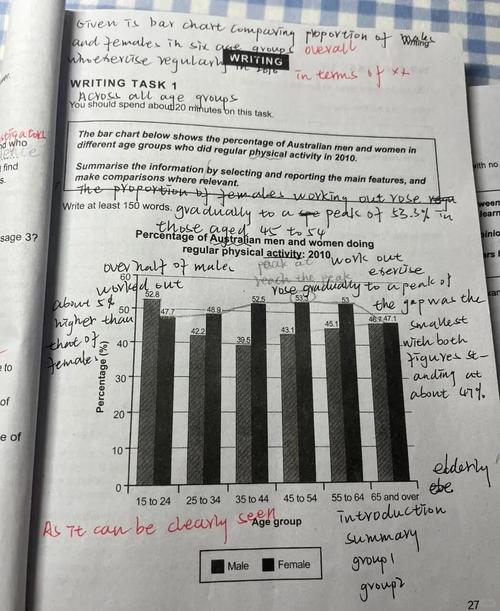 Given is bar chart comparing proportion of males
and females in six age groups overall
who exercise regularly in 2010
WRITING
in terms of xx
WRITING TASK 1
Across all age groups
You should spend about 20 minutes on this task.
The bar chart below shows the percentage of Australian men and women in
different age groups who did regular physical activity in 2010.
Summarise the information by selecting and reporting the main features, and
make comparisons where relevant.
The proportion of females working out rose
Write at least 150 words.
gradually to a peak of 53.3% in
those aged 45 to 54
Percentage of Australian men and women doing
regular physical activity: 2010
over half of males
worked out
peak at
reach the peak
work out
exercise
rose gradually to a peak of
about 5%
higher than
that of
females
the gap was the
smallest
with both
figures st-
anding at
about 47%
Percentage (%)
60
50
40
30
20
10
0
52.8
47.7
42.2
48.9
39.5
52.5
43.1
53.3
45.1
53
46.7
47.1
15 to 24
25 to 34
35 to 44
45 to 54
55 to 64
65 and over
Age group
elderly
As it can be clearly seen
introduction
summary
group1
group2
Male
Female
27
sage 3?
nd who
find
s.
to
of
e of
ith no